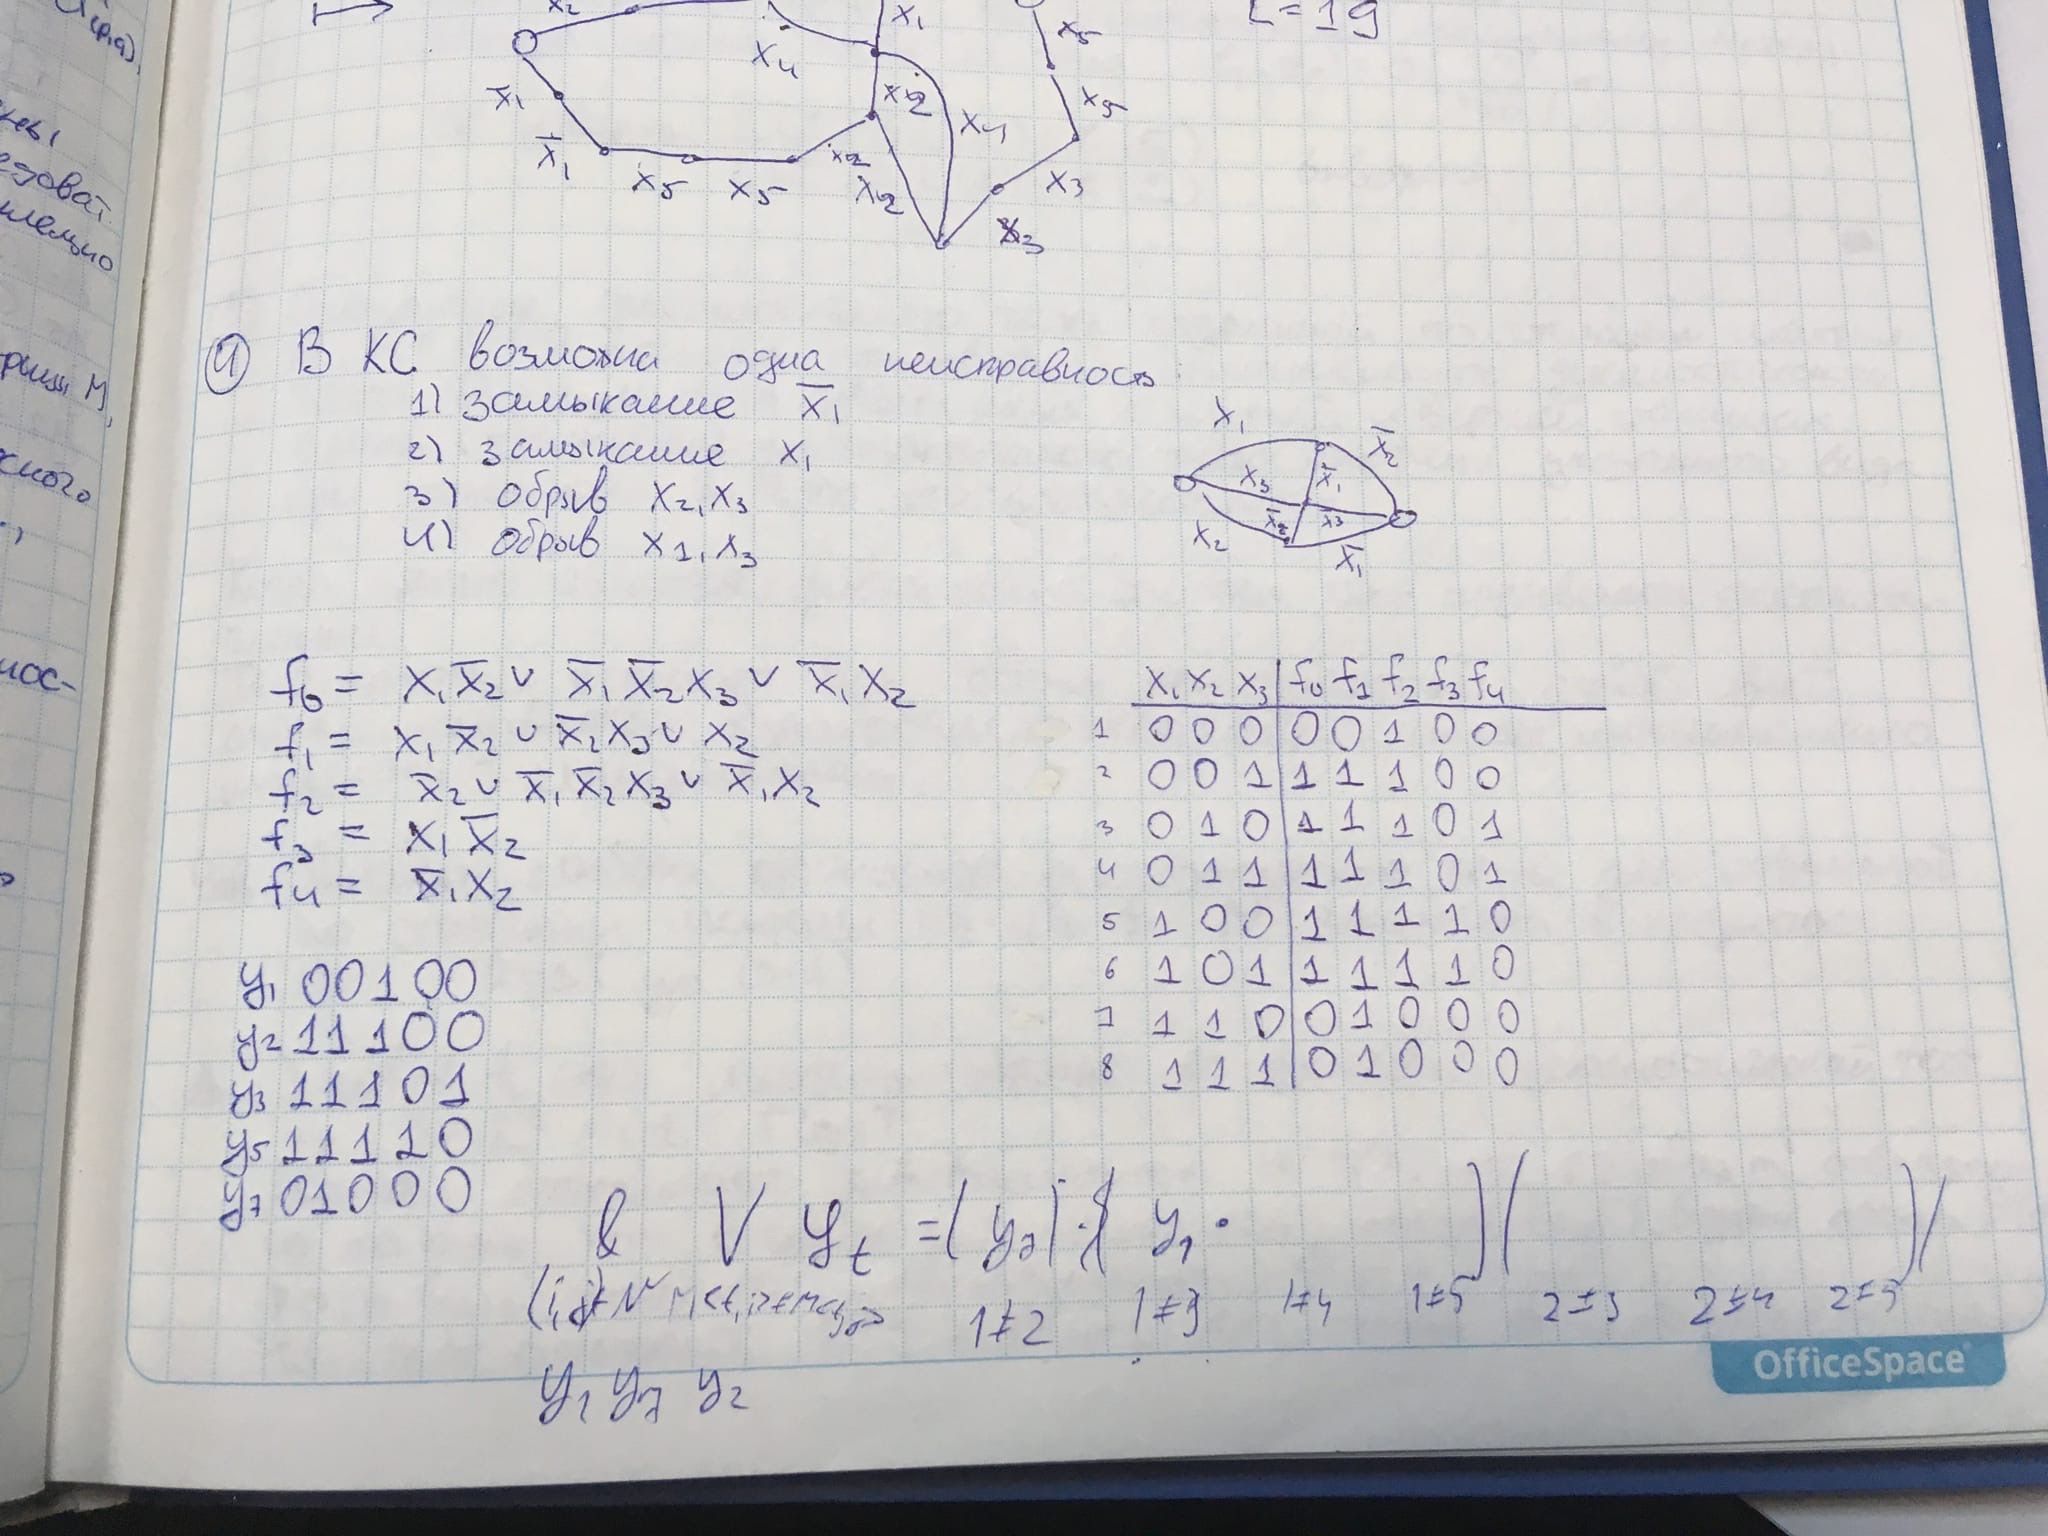 x₂ x₄ x₁ x₅ L=19
x̄₁ x₂ x₄ x₅
x̄₁ x₅ x₅ x₂ x₂ x₃
x₃
4) В КС возможна одна неисправность
1) замыкание x̄₁
2) замыкание x₁
3) обрыв x₂, x₃
4) обрыв x₁, x₃
x₁ x̄₂
x₃ x̄₁
x₂ x̄₂ x₃
x̄₁
f₀ = x₁x̄₂ ∨ x̄₁x̄₂x₃ ∨ x̄₁x₂
f₁ = x₁x̄₂ ∨ x̄₂x₃ ∨ x₂
f₂ = x̄₂ ∨ x̄₁x̄₂x₃ ∨ x̄₁x₂
f₃ = x₁x̄₂
f₄ = x̄₁x₂
x₁ x₂ x₃ f₀ f₁ f₂ f₃ f₄
1 0 0 0 0 0 1 0 0
2 0 0 1 1 1 1 0 0
3 0 1 0 1 1 1 0 1
4 0 1 1 1 1 1 0 1
5 1 0 0 1 1 1 1 0
6 1 0 1 1 1 1 1 0
7 1 1 0 0 1 0 0 0
8 1 1 1 0 1 0 0 0
y₁ 00100
y₂ 11100
y₃ 11101
y₅ 11110
y₇ 01000
& ∨ y_t = (y₇)·( y₁ · )( )(
1≠2 1≠3 1≠4 1≠5 2≠3 2≠4 2≠5
y₁ y₇ y₂
OfficeSpace